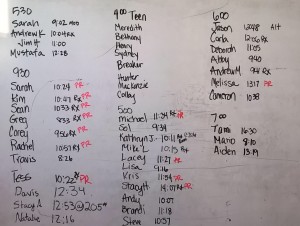 530
Sarah 9:02
Andrew K 11:04 Rx
Jim H 11:00
Mustafa 12:28
930
Sarah 10:24 PR
Kim 10:47 Rx PR
Sean 10:33 Rx PR
Greg 9:33 Rx PR
Corey 9:56 Rx PR
Rachel 10:51 Rx PR
Travis 8:26
Tess 10:22 Rx PR
Davis 12:34
Stacy A 12:53@205#
Natalie 12:16
400 Teen
Meredith
Bethany
Henry
Sydney
Breaker
Hunter
Mackenzie
Colby
500
michael 11:34 Rx PR
Sol 9:34
Kathryn J 10:11
Mike L 10:13 Rx
Lacey 11:27 PR
Lisa 9:16
Kris 11:54 PR
Stacy H 14:07 Rx PR
Andy 10:07
Brandi 11:18
Steve 10:37
600
Jason 12:48
Carla 12:06 Rx
Deborah 11:05
Abby 9:40
Andrew M 9:4 Rx
Melissa 13:17 PR
Cameron 10:38
700
Tami 16:30
Mario 8:10
Aiden 13:19